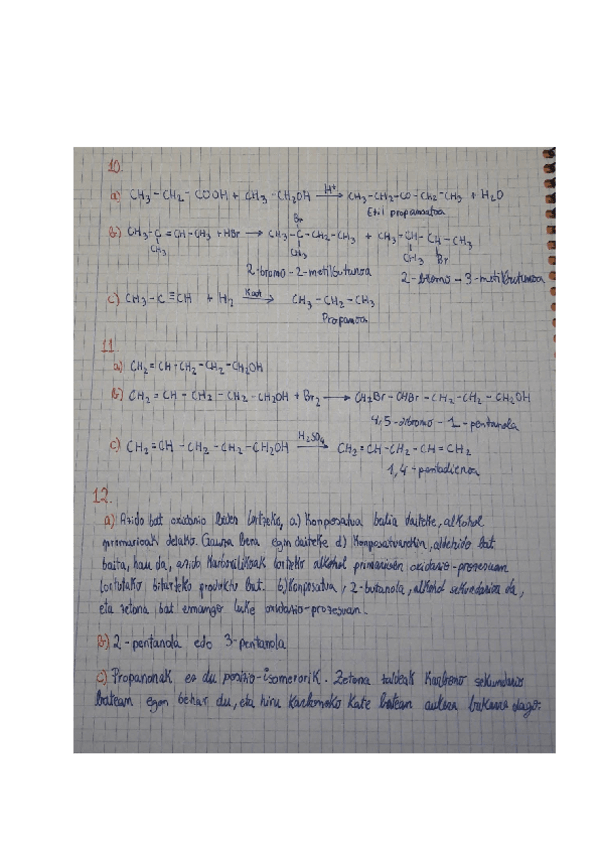 10.
a) CH3 - CH2 - COOH + CH3 - CH2OH —H+→ CH3 - CH2 - CO - CH2 - CH3 + H2O
Etil propanoatoa
Br
b) CH3 - C = CH - CH3 + HBr → CH3 - C - CH2 - CH3 + CH3 - CH - CH - CH3
CH3 CH3 CH3 Br
2-bromo-2-metilbutanoa 2-bromo-3-metilbutanoa
c) CH3 - C ≡ CH + H2 —Kat→ CH3 - CH2 - CH3
Propanoa
11
a) CH2 = CH - CH2 - CH2 - CH2OH
b) CH2 = CH - CH2 - CH2 - CH2OH + Br2 → CH2Br - CHBr - CH2 - CH2 - CH2OH
4,5-dibromo-1-pentanola
c) CH2 = CH - CH2 - CH2 - CH2OH —H2SO4→ CH2 = CH - CH2 - CH = CH2
1,4-pentadienoa
12.
a) Azido bat oxidazio bidez lortzeko, a) Konposatua balia daiteke, alkohol
primarioak delako. Gauza bera egin daiteke d) Konposatuarekin, aldehido bat
baita, hau da, azido karboxilikoak lortzeko alkohol primarioen oxidazio-prozesuan
lortutako bitarteko produktu bat. b) Konposatua, 2-butanola, alkohol sekundarioa da,
eta zetona bat emango luke oxidazio-prozesuan.
b) 2-pentanola edo 3-pentanola
c) Propanonak ez du positio-isomerorik. Zetona taldeak Karbono sekundario
batean egon behar du, eta hiru Karbonoko Kate batean aukera bakarra dago.